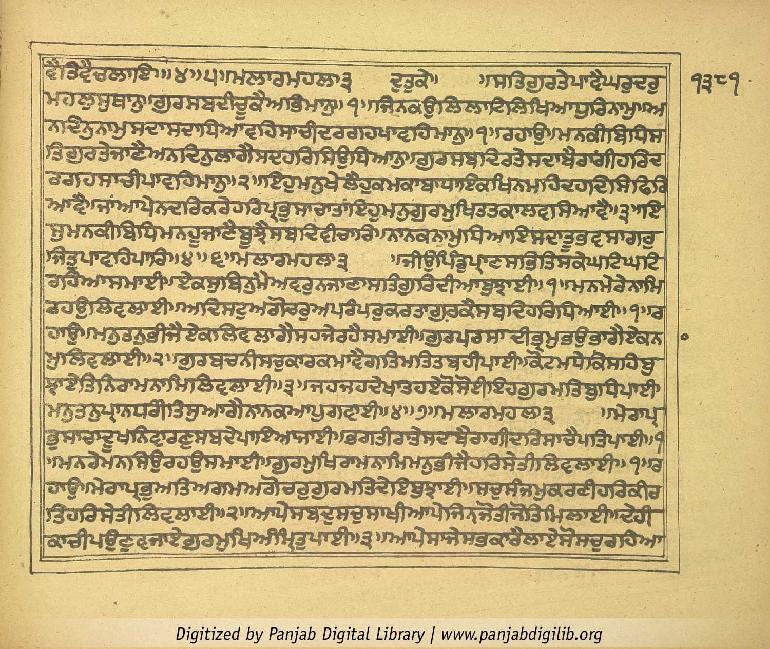 ਵੈਤਿਵੈਚਲਾਇ॥੪॥੫॥ਮਲਾਰਮਹਲਾ੩ ਦੁਤੁਕੇ ॥ਸਤਿਗੁਰਤੇਪਾਵੈਘਰੁਦਰੁ
੧੩੮੧
ਮਹਲੁਸੁਥਾਨੁ॥ਗੁਰਸਬਦੀਚੂਕੈਅਭਿਮਾਨੁ॥੧॥ਜਿਨਕਉਲਿਲਾਟਿਲਿਖਿਆਧੁਰਿਨਾਮੁ॥ਅ
ਨਦਿਨੁਨਾਮੁਸਦਾਸਦਾਧਿਆਵਹਿਸਾਚੀਦਰਗਹਪਾਵਹਿਮਾਨੁ॥੧॥ਰਹਾਉ॥ਮਨਕੀਬਿਧਿਸ
ਤਿਗੁਰਤੇਜਾਣੈਅਨਦਿਨੁਲਾਗੈਸਦਹਰਿਸਿਉਧਿਆਨੁ॥ਗੁਰਸਬਦਿਰਤੇਸਦਾਬੈਰਾਗੀਹਰਿਦ
ਰਗਹਸਾਚੀਪਾਵਹਿਮਾਨੁ॥੨॥ਇਹੁਮਨੁਖੇਲੈਹੁਕਮਕਾਬਾਧਾਇਕਖਿਨਮਹਿਦਹਦਿਸਿਫਿਰਿ
ਆਵੈ॥ਜਾਂਆਪੇਨਦਰਿਕਰੇਹਰਿਪ੍ਰਭੁਸਾਚਾਤਾਂਇਹੁਮਨੁਗੁਰਮੁਖਿਤਤਕਾਲਵਸਿਆਵੈ॥੩॥ਇ
ਸੁਮਨਕੀਬਿਧਿਮਨਹੂਜਾਣੈਬੂਝੈਸਬਦਿਵੀਚਾਰਿ॥ਨਾਨਕਨਾਮੁਧਿਆਇਸਦਾਤੂਭਵਸਾਗਰੁ
ਜਿਤੁਪਾਵਹਿਪਾਰਿ॥੪॥੬॥ਮਲਾਰਮਹਲਾ੩ ॥ਜੀਉਪਿੰਡੁਪ੍ਰਾਣਸਭਿਤਿਸਕੇਘਟਿਘਟਿ
ਰਹਿਆਸਮਾਈ॥ਏਕਸੁਬਿਨੁਮੈਅਵਰੁਨਜਾਣਾਸਤਿਗੁਰਿਦੀਆਬੁਝਾਈ॥੧॥ਮਨਮੇਰੇਨਾਮਿ
ਰਹਉਲਿਵਲਾਈ॥ਅਦਿਸਟੁਅਗੋਚਰੁਅਪਰੰਪਰੁਕਰਤਾਗੁਰਕੈਸਬਦਿਹਰਿਧਿਆਈ॥੧॥ਰ
ਹਾਉ॥ਮਨੁਤਨੁਭੀਜੈਏਕਲਿਵਲਾਗੈਸਹਜੇਰਹੇਸਮਾਈ॥ਗੁਰਪਰਸਾਦੀਭ੍ਰਮੁਭਉਭਾਗੈਏਕਨ
ਾਮਿਲਿਵਲਾਈ॥੨॥ਗੁਰਬਚਨੀਸਚੁਕਾਰਕਮਾਵੈਗਤਿਮਤਿਤਬਹੀਪਾਈ॥ਕੋਟਮਧੇਕਿਸਹਿਬੁ
ਝਾਏਤਿਨਿਰਾਮਨਾਮਿਲਿਵਲਾਈ॥੩॥ਜਹਜਹਦੇਖਾਤਹਏਕੋਸੋਈਇਹਗੁਰਮਤਿਬੁਧਿਪਾਈ
ਮਨੁਤਨੁਪ੍ਰਾਨਧਰੀਤਿਸੁਆਗੈਨਾਨਕਆਪੁਗਵਾਈ॥੪॥੭॥ਮਲਾਰਮਹਲਾ੩ ॥ਮੇਰਾਪ੍ਰ
ਭੁਸਾਚਾਦੂਖਨਿਵਾਰਣੁਸਬਦੇਪਾਇਆਜਾਈ॥ਭਗਤੀਰਾਤੇਸਦਬੈਰਾਗੀਦਰਿਸਾਚੈਪਤਿਪਾਈ॥੧
॥ਮਨਰੇਮਨਸਿਉਰਹਉਸਮਾਈ॥ਗੁਰਮੁਖਿਰਾਮਨਾਮਿਮਨੁਭੀਜੈਹਰਿਸੇਤੀਲਿਵਲਾਈ॥੧॥ਰ
ਹਾਉ॥ਮੇਰਾਪ੍ਰਭੁਅਤਿਅਗਮਅਗੋਚਰੁਗੁਰਮਤਿਦੇਇਬੁਝਾਈ॥ਸਚੁਸੰਜਮੁਕਰਣੀਹਰਿਕੀਰ
ਤਿਹਰਿਸੇਤੀਲਿਵਲਾਈ॥੨॥ਆਪੇਸਬਦੁਸਚੁਸਾਖੀਆਪੇਜਿਨਜੋਤੀਜੋਤਿਮਿਲਾਈ॥ਦੇਹੀ
ਕਾਚੀਪਉਣੁਵਜਾਏਗੁਰਮੁਖਿਅੰਮ੍ਰਿਤੁਪਾਈ॥੩॥ਆਪੇਸਾਜੇਸਭਕਾਰੈਲਾਏਸੋਸਚੁਰਹਿਆ
Digitized by Panjab Digital Library | www.panjabdigilib.org